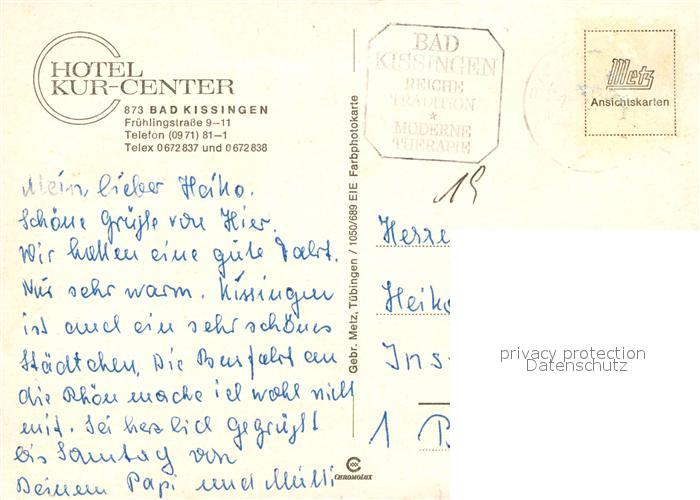 HOTEL
KUR-CENTER
873 BAD KISSINGEN
Frühlingstraße 9–11
Telefon (0971) 81–1
Telex 0672837 und 0672838
Mein lieber Heiko.
Schöne Grüße von Hier.
Wir hatten eine gute Fahrt.
Nur sehr warm. Kissingen
ist auch ein sehr schönes
Städtchen. Die Busfahrt an
die Rhön mache ich wohl nicht
mit. Sei herzlich gegrüßt
bis Sonntag von
Deinem Papi und Mutti
Gebr. Metz, Tübingen / 1050/689 EIE Farbphotokarte
CHROMOLUX
BAD
KISSINGEN
REICHE
TRADITION
*
MODERNE
THERAPIE
Metz
Ansichtskarten
Herrn
Heiko
Ins
1 B
privacy protection
Datenschutz